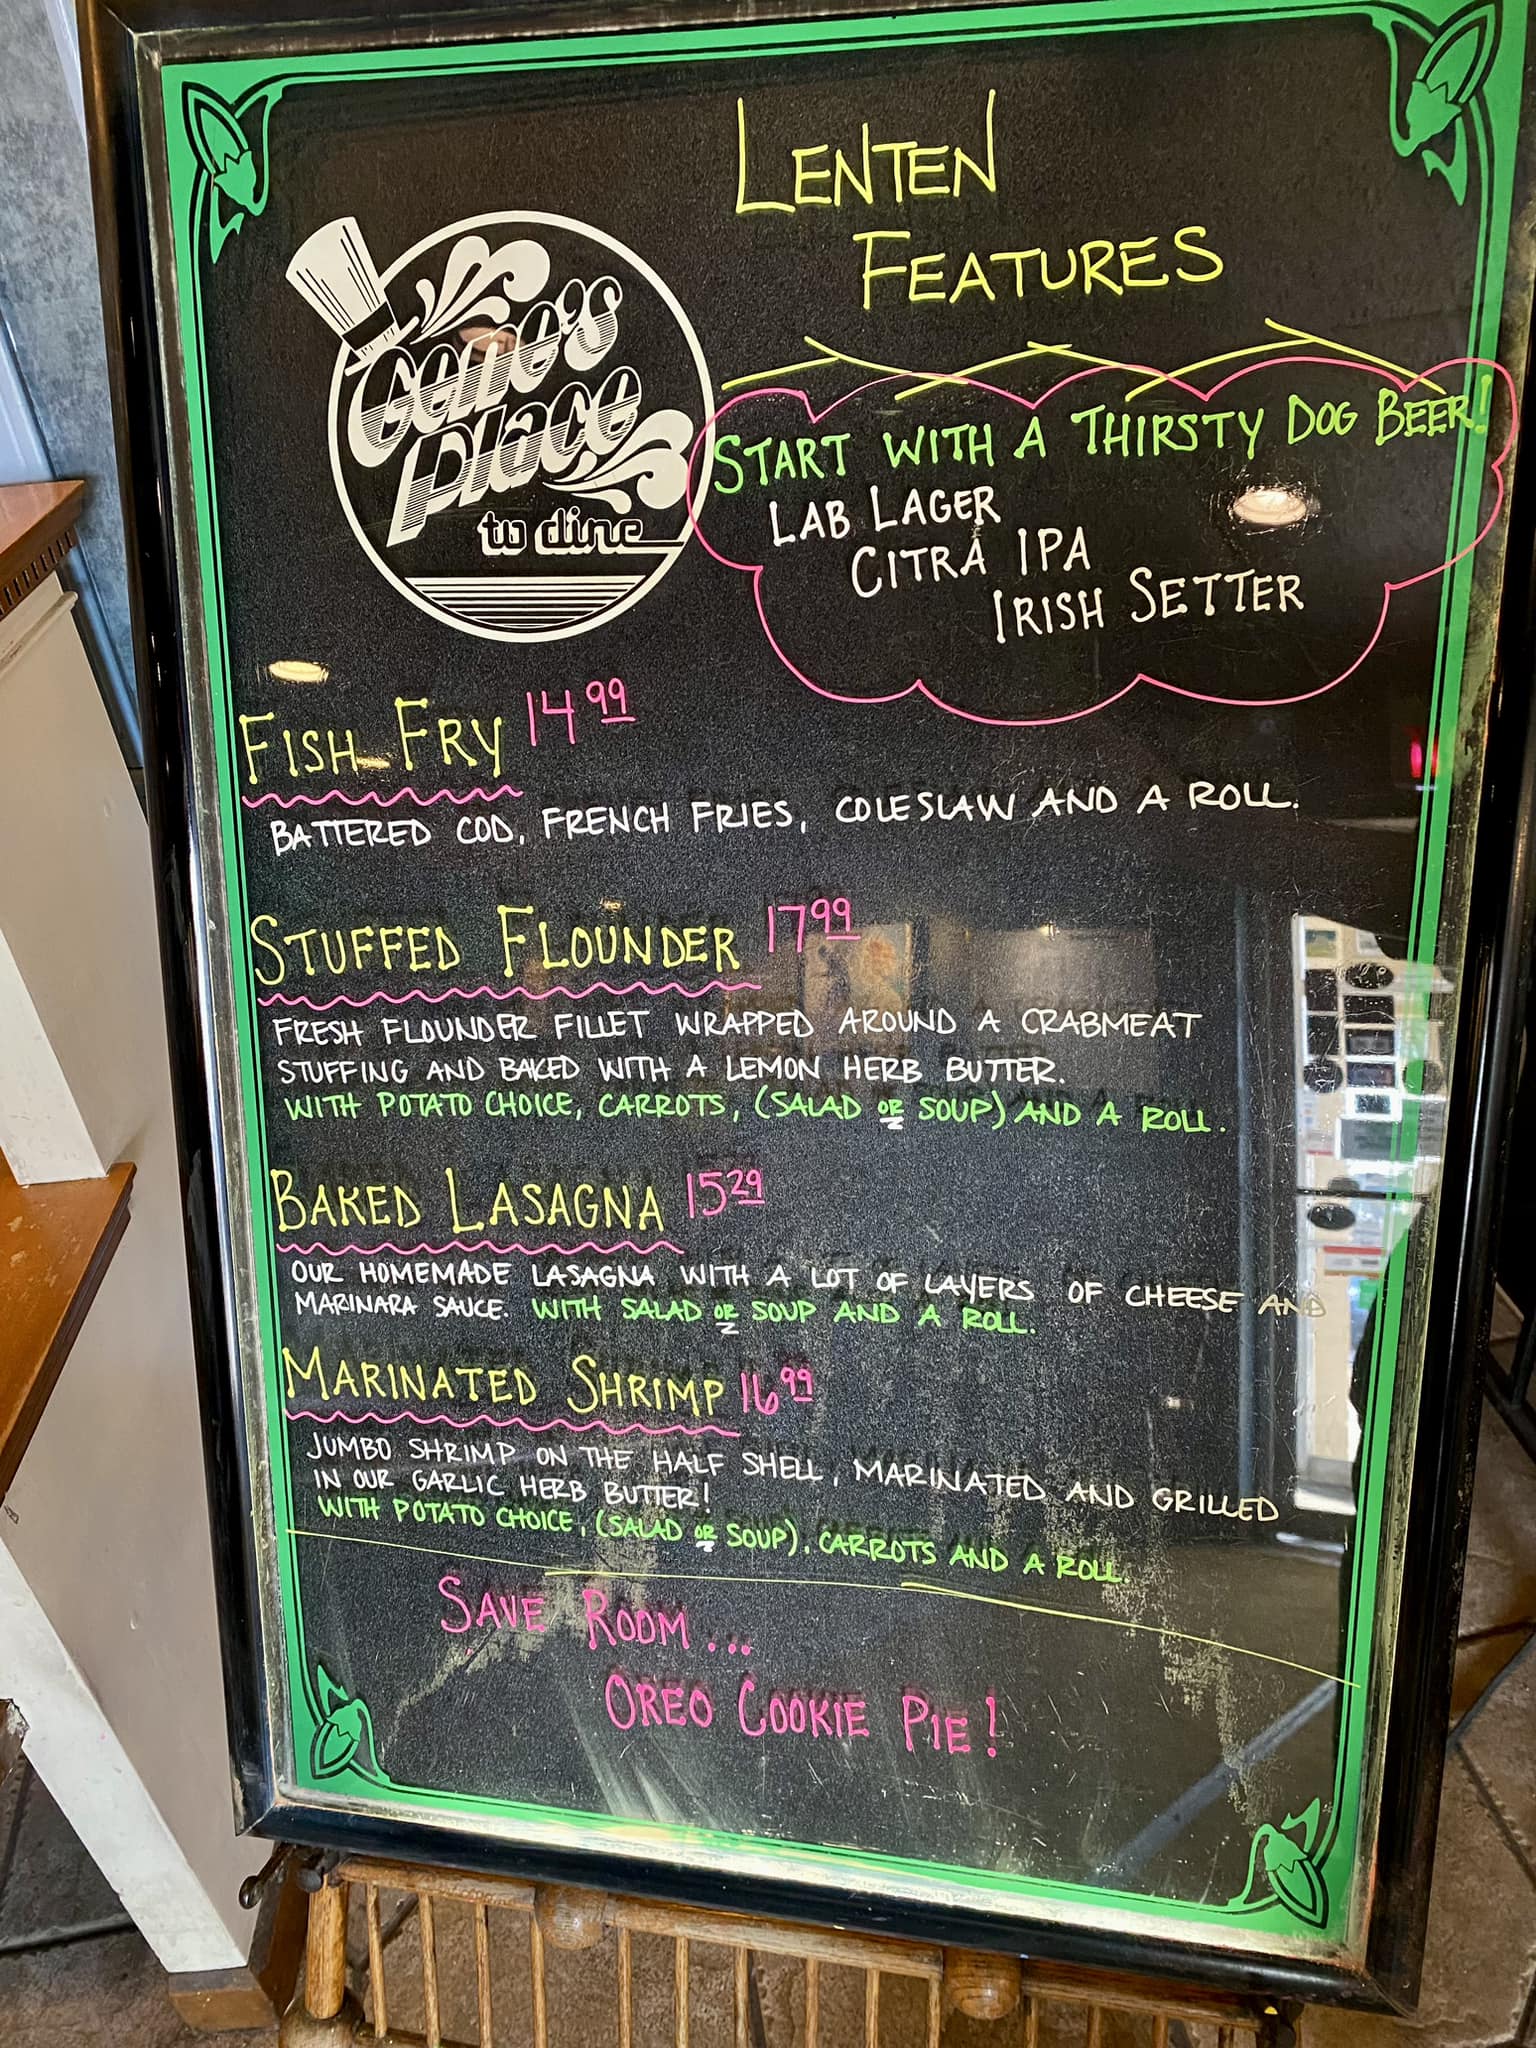 LENTEN
FEATURES
Gene's
place
to dine
START WITH A THIRSTY DOG BEER!
LAB LAGER
CITRA IPA
IRISH SETTER
FISH FRY 14.99
BATTERED COD, FRENCH FRIES, COLESLAW AND A ROLL.
STUFFED FLOUNDER 17.99
FRESH FLOUNDER FILLET WRAPPED AROUND A CRABMEAT
STUFFING AND BAKED WITH A LEMON HERB BUTTER.
WITH POTATO CHOICE, CARROTS, (SALAD OR SOUP) AND A ROLL.
BAKED LASAGNA 15.29
OUR HOMEMADE LASAGNA WITH A LOT OF LAYERS OF CHEESE AND
MARINARA SAUCE. WITH SALAD OR SOUP AND A ROLL.
MARINATED SHRIMP 16.99
JUMBO SHRIMP ON THE HALF SHELL, MARINATED AND GRILLED
IN OUR GARLIC HERB BUTTER!
WITH POTATO CHOICE, (SALAD OR SOUP), CARROTS AND A ROLL.
SAVE ROOM...
OREO COOKIE PIE!